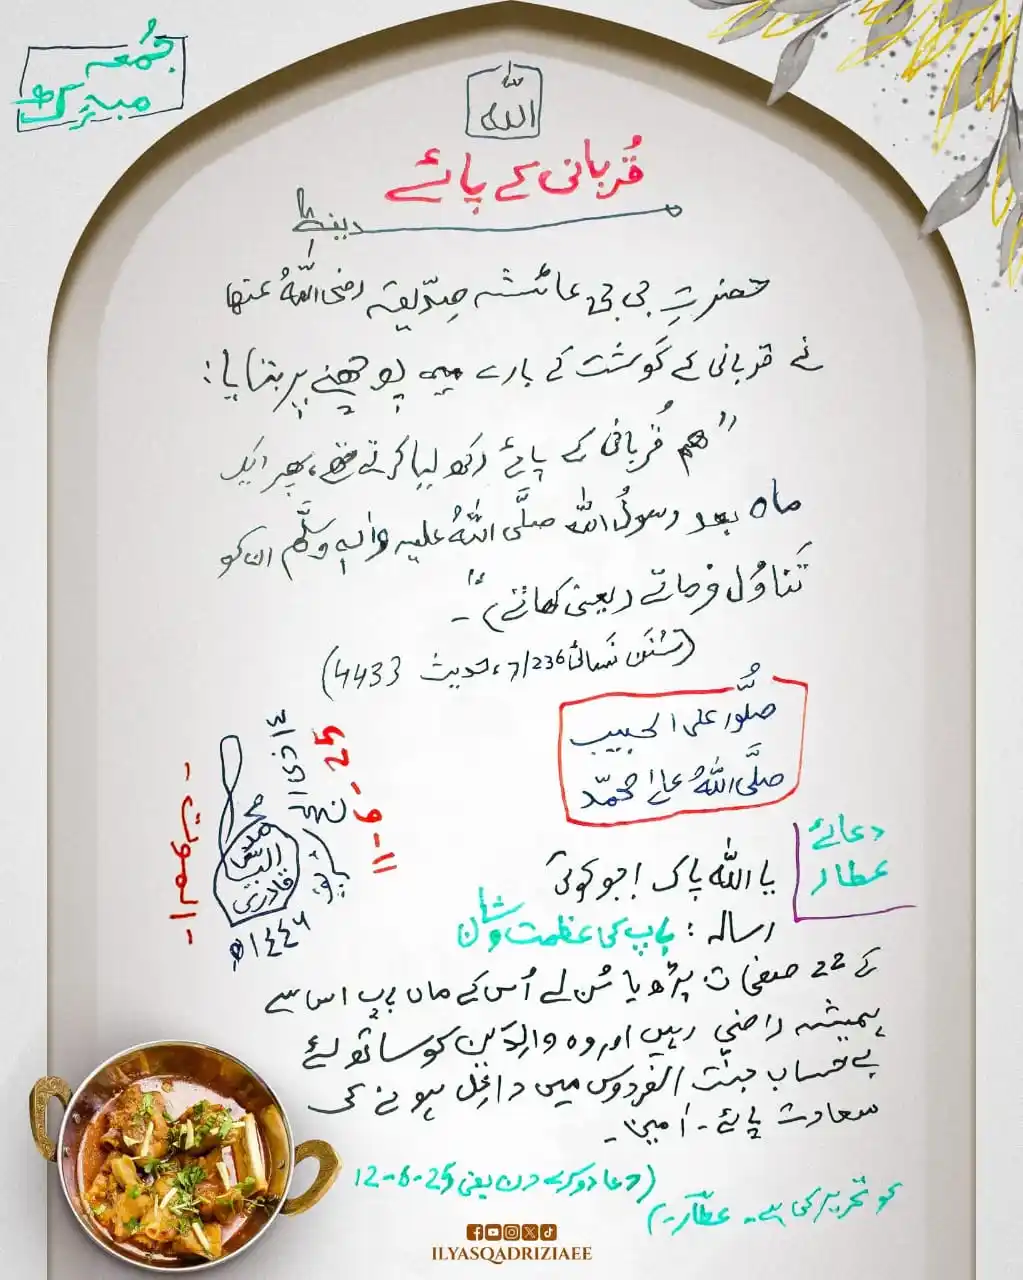 جُمُعہ
مبارَک
اللہ
قُربانی کے پائے
حضرتِ بی بی عائشہ صِدّیقہ رضی اللہُ عنہا
نے قربانی کے گوشت کے بارے میں پوچھنے پر بتایا:
"ہم قُربانی کے پائے رکھ لیا کرتے تھے، پھر ایک
ماہ بعد رسولُ اللہ صلَّی اللہُ علیہ واٰلہٖ وسلَّم ان کو
تَناوُل فرماتے (یعنی کھاتے)"۔
(سُنَن نَسائی 7/236، حدیث 4433)
صلُّوا علی الحبیب
صلَّی اللہُ علیٰ محمّد
11-6-25
محمد الیاس قادری
١٤٤٦ھ
- الموت -
دعائے
عطار
یا اللہ پاک! جو کوئی
رسالہ: باپ کی عظمت و شان
کے 22 صفحات پڑھ یا سُن لے اُس کے ماں باپ اس سے
ہمیشہ راضی رہیں اور وہ والِدَین کو ساتھ لئے
بے حساب جنّت الفردوس میں داخِل ہونے کی
سعادت پائے۔ اٰمین۔
(دعا دوسرے دن یعنی 12-6-25
کو تحریر کی ہے۔ عطّار۔)
ILYASQADRIZIAEE